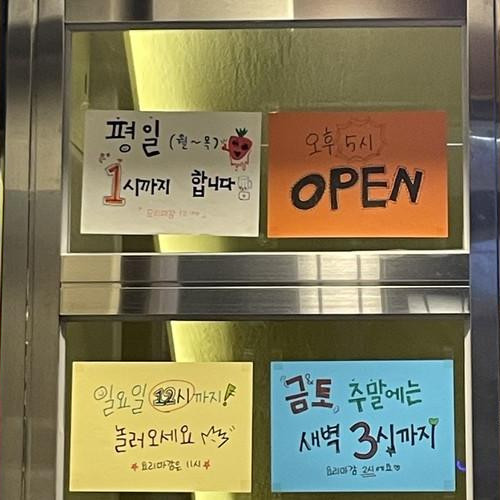 평일 (월~목)
1시까지 합니다
요리마감 12시
오후 5시
OPEN
일요일 12시까지!
놀러오세요
요리마감은 11시
금토 주말에는
새벽 3시까지
요리마감 2시예요